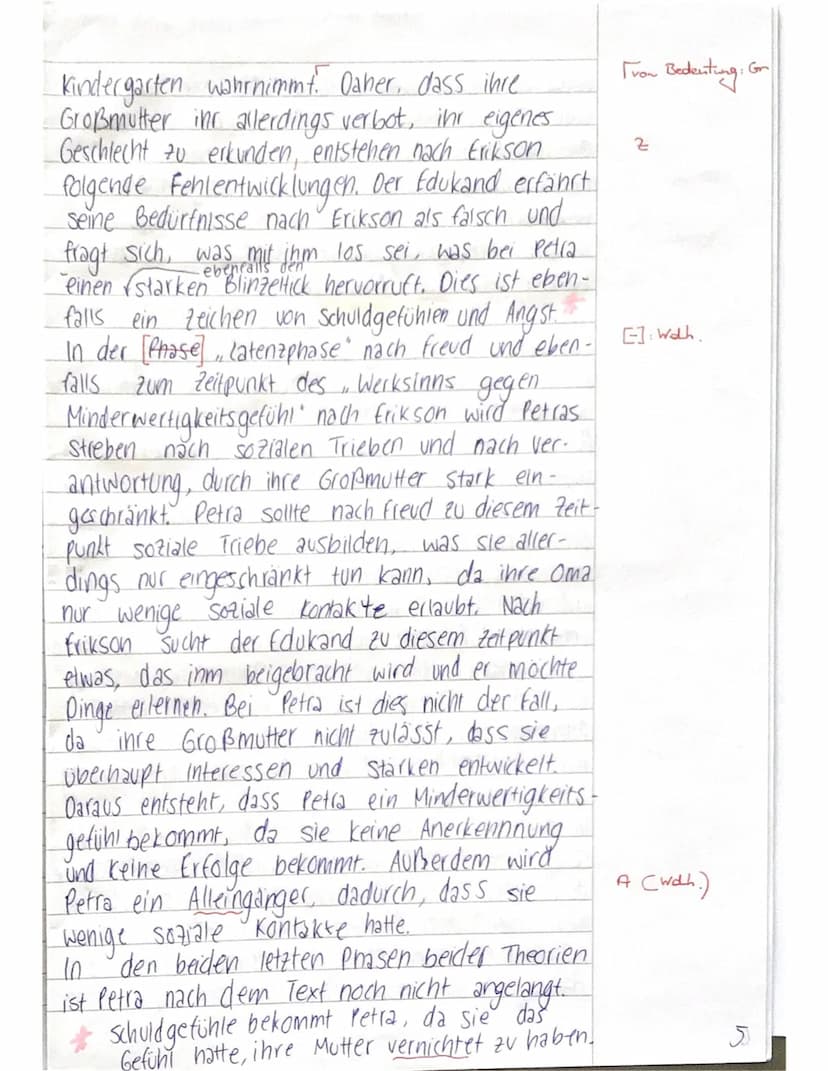 Kindergarten wahrnimmt.⌈ Daher, dass ihre
⌈von Bedeutung: Gr
Großmutter ihr allerdings verbot, ihr eigenes
Geschlecht zu erkunden, entstehen nach Erikson
Z
folgende Fehlentwicklungen. Der Edukand erfährt
seine Bedürfnisse nach Erikson als falsch und
fragt sich, was mit ihm los sei, was bei Petra
ebenfalls den
einen starken Blinzeltick hervorruft. Dies ist eben-
falls ein Zeichen von Schuldgefühlen und Angst.*
In der [Phase] „Latenzphase“ nach Freud und eben-
[-]: Wdh.
falls zum Zeitpunkt des „Werksinns gegen
Minderwertigkeitsgefühl“ nach Erikson wird Petras
Streben nach sozialen Trieben und nach Ver-
antwortung, durch ihre Großmutter stark ein-
geschränkt. Petra sollte nach Freud zu diesem Zeit-
punkt soziale Triebe ausbilden, was sie aller-
dings nur eingeschränkt tun kann, da ihre Oma
nur wenige soziale Kontakte erlaubt. Nach
Erikson sucht der Edukand zu diesem Zeitpunkt
etwas, das ihm beigebracht wird und er möchte
Dinge erlernen. Bei Petra ist dies nicht der Fall,
da ihre Großmutter nicht zulässt, dass sie
überhaupt Interessen und Stärken entwickelt.
Daraus entsteht, dass Petra ein Minderwertigkeits-
gefühl bekommt, da sie keine Anerkennnung
und keine Erfolge bekommt. Außerdem wird
Petra ein Alleingänger, dadurch, dass sie
A (Wdh.)
wenige soziale Kontakte hatte.
In den beiden letzten Phasen beider Theorien
ist Petra nach dem Text noch nicht angelangt.
* Schuldgefühle bekommt Petra, da sie das
Gefühl hatte, ihre Mutter vernichtet zu haben.
5